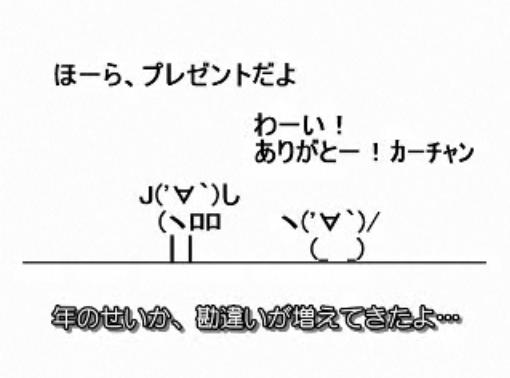 ほーら、プレゼントだよ
わーい！
ありがとー！カーチャン
J('∀`)し
(ヽロロ
||
ヽ('∀`)/
(_ _)
年のせいか、勘違いが増えてきたよ…